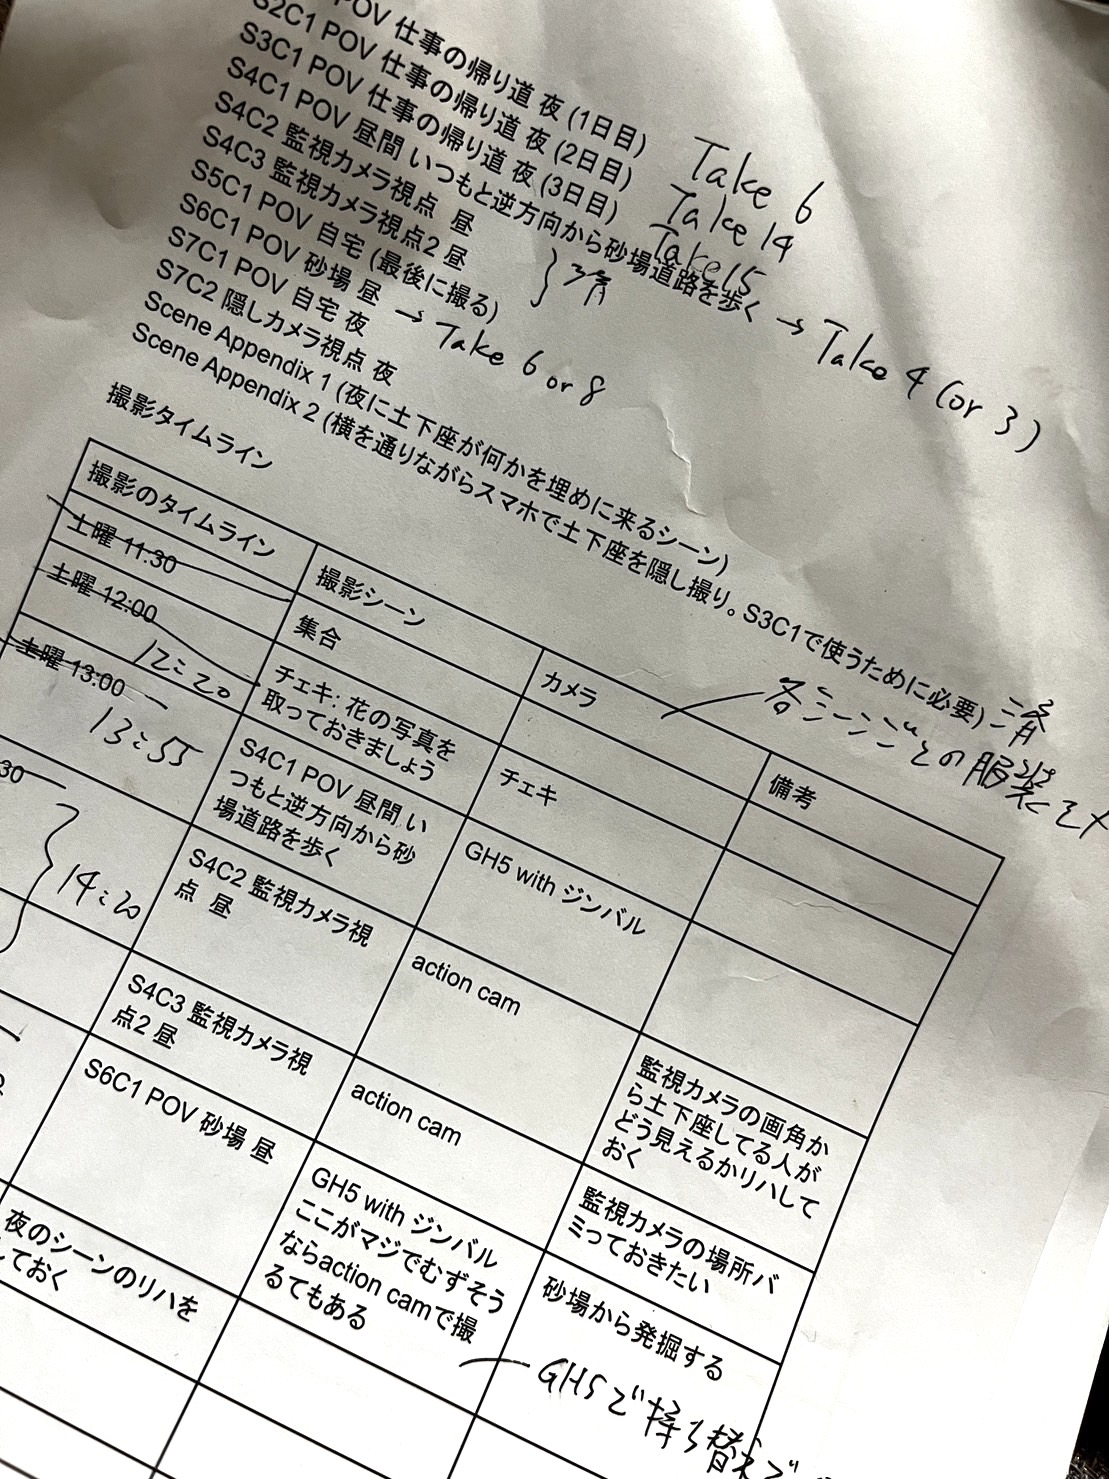 POV 仕事の帰り道 夜 (1日目) Take 6
S2C1 POV 仕事の帰り道 夜 (2日目) Take 14
S3C1 POV 仕事の帰り道 夜 (3日目) Take 15
S4C1 POV 昼間 いつもと逆方向から砂場道路を歩く → Take 4 (or 3)
S4C2 監視カメラ視点 昼
S4C3 監視カメラ視点2 昼
} 済
S5C1 POV 自宅 (最後に撮る)
S6C1 POV 砂場 昼 → Take 6 or 8
S7C1 POV 自宅 夜
S7C2 隠しカメラ視点 夜
Scene Appendix 1 (夜に土下座が何かを埋めに来るシーン)
Scene Appendix 2 (横を通りながらスマホで土下座を隠し撮り。S3C1で使うために必要) 済
撮影タイムライン
各シーンごとの服装
撮影のタイムライン
撮影シーン
カメラ
備考
土曜 11:30
集合
土曜 12:00
12:20
チェキ: 花の写真を
取っておきましょう
チェキ
土曜 13:00
13:55
S4C1 POV 昼間 い
つもと逆方向から砂
場道路を歩く
GH5 with ジンバル
30
} 14:20
S4C2 監視カメラ視
点 昼
action cam
監視カメラの画角か
ら土下座してる人が
どう見えるかリハして
おく
S4C3 監視カメラ視
点2 昼
action cam
監視カメラの場所バ
ミっておきたい
S6C1 POV 砂場 昼
GH5 with ジンバル
ここがマジでむずそう
ならaction camで撮
るてもある
砂場から発掘する
GH5で持ち替えで
夜のシーンのリハを
しておく